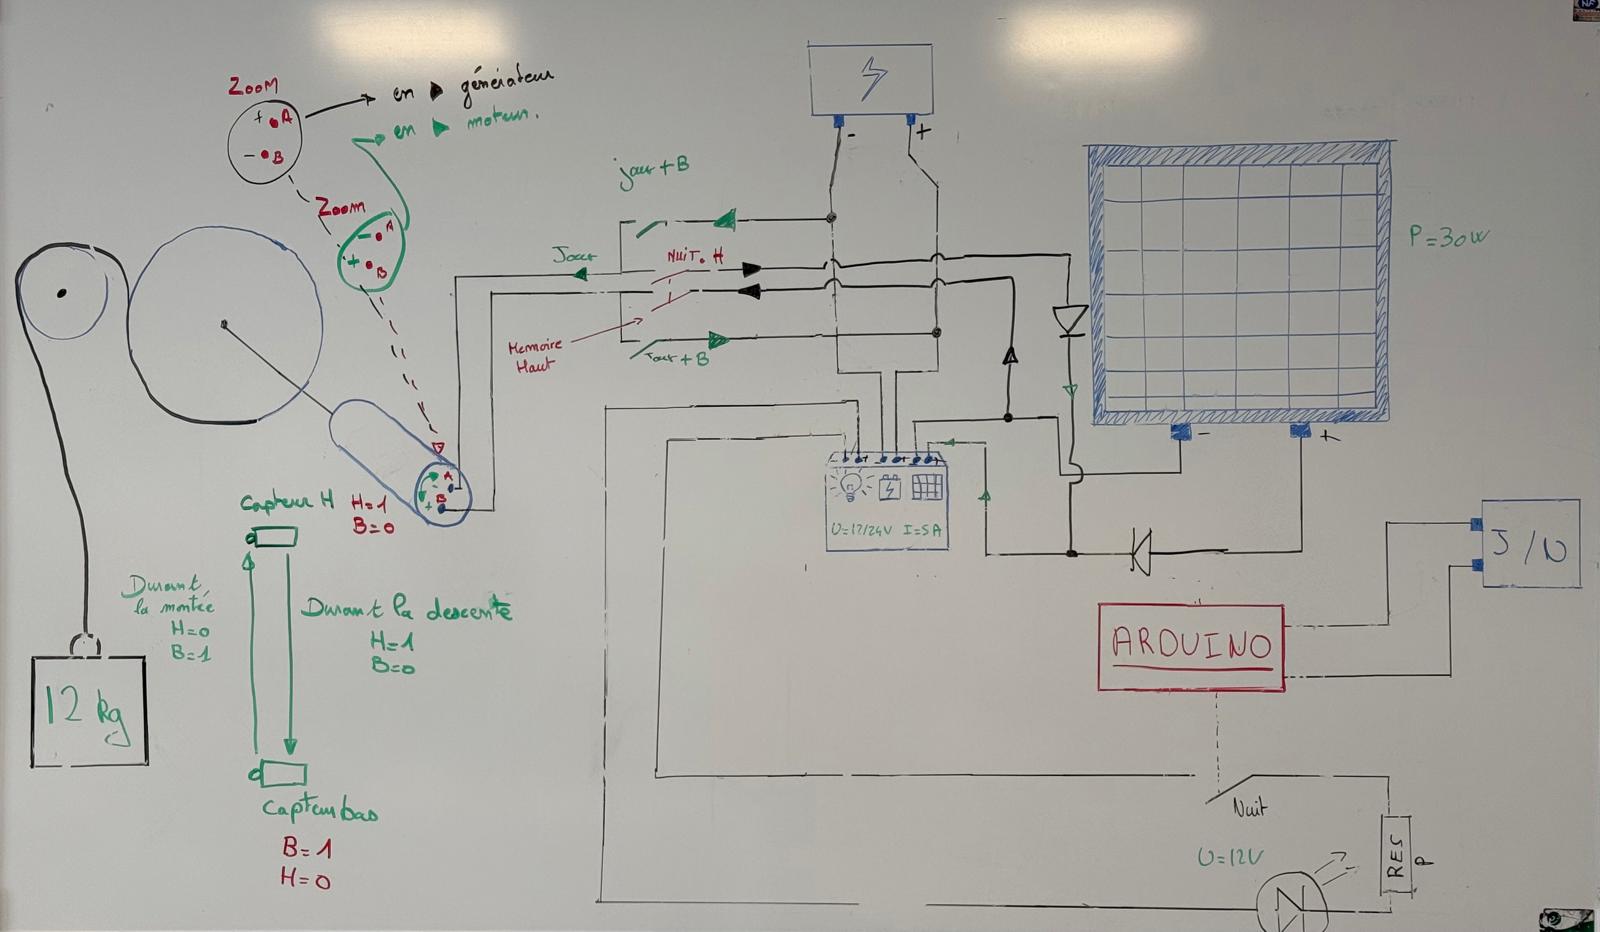 ZOOM
+ A
- B
en ▶ générateur
en ▶ moteur.
Zoom
- A
+ B
jour + B
- +
Jour
NUIT. H
Jour + B
Memoire
Haut
P = 30W
- +
A
-
B
+
U=12/24V I=5A
Capteur H
H=1
B=0
Durant
la montée
H=0
B=1
Durant la descente
H=1
B=0
12 kg
Capteur bas
B=1
H=0
J/N
ARDUINO
Nuit
U=12V
RES
P